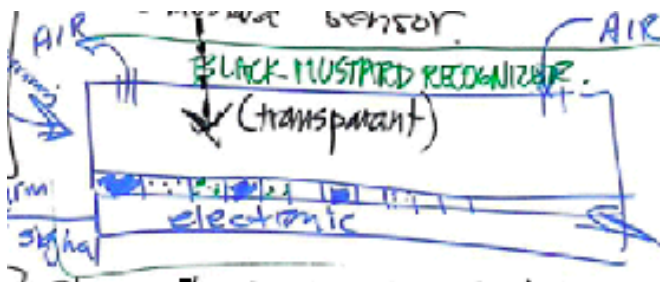 sensor.
AIR AIR
BLACK MUSTARD RECOGNIZER.
(transparant)
electronic